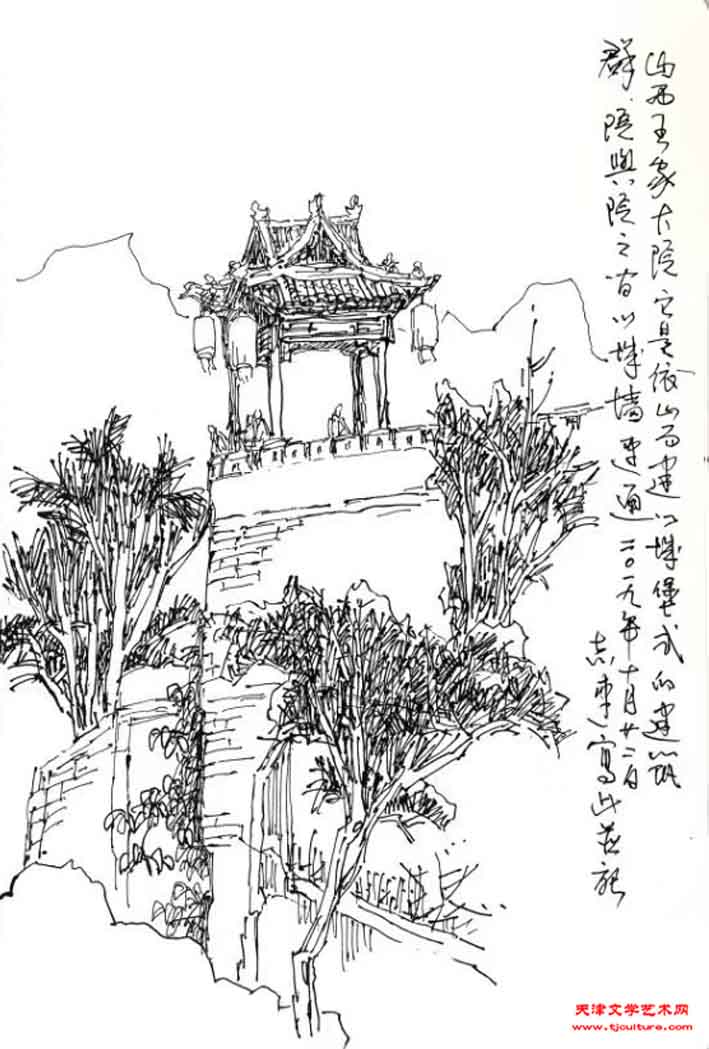 山西王家大院它是依山而建以城堡式的建筑
群.院與院之间以城墙连通二〇一九年十月廿二日
志东写此并记
天津文学艺术网
www.tjculture.com